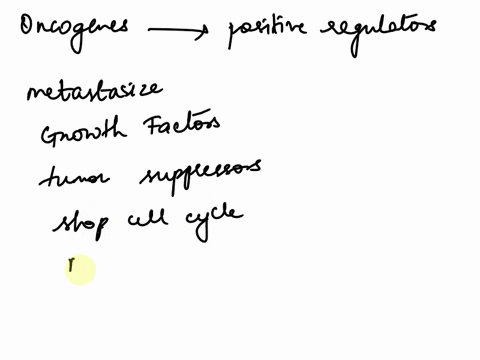 Oncogenes → positive regulators
metastasize
Growth Factors
tumor suppressors
stop cell cycle